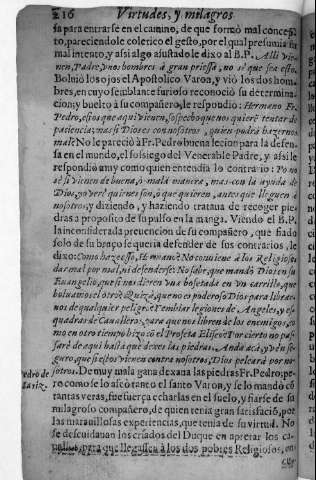 216 Virtudes, y milagros
sa para entrarse en el camino, de que formò mal concep-
to, pareciendole colerico el gesto, por el qual presumia su
mal intento, y assi algo assustado le dixo al B.P. Alli vie-
nen, Padre, vnos hombres à gran priessa, no sè que sea esto.
Bolviò los ojos el Apostolico Varon, y viò los dos hom-
bres, en cuyo semblante furioso reconociò su determina-
cion; y buelto à su compañero, le respondiò: Hermano Fr.
Pedro, essos que aqui vienen, sospecho que nos quieren tentar de
paciencia; mas si Dios es con nosotros, quien podrà hazernos
mal? No le pareciò à Fr. Pedro buena leccion para la defen-
sa en el mundo, el sossiego del Venerable Padre, y assi le
respondiò muy como quien entendia lo contrario: Po no
sè si vienen de buena, ò mala manera, mas con la ayuda de
Dios, yo verè quienes son, ò que quieren, antes que lleguen à
nosotros; y diziendo, y haziendo tratava de recoger pie-
dras à proposito de su pulso en la manga. Viendo el B.P.
la inconsiderada prevencion de su compañero, que fiado
solo de su braço se queria defender de sus contrarios, le
dixo: Como haze esso, Hermano? No conviene à los Religiosos
dar mal por mal, ni defenderse: No sabe, que mandò Dios en su
Euangelio, que si nos dieren vna bofetada en vn carrillo, que
bolvamos el otro? Quizà, que no es poderoso Dios para librar-
nos de qualquier peligro? Y embiar legiones de Angeles, y es-
quadras de Cavalleros, para que nos libren de los enemigos, co-
mo en otro tiempo hizo cõ el Profeta Eliseo? Por cierto no pas-
sarè de aqui hasta que dexes las piedras. Anda acà, y vèn se-
guro, que si estos vienen contra nosotros, Dios pelearà por no-
sotros. De muy mala gana dexava las piedras Fr. Pedro; pe-
ro como se lo afeò tanto el santo Varon, y se lo mandò cõ
tantas veras, fue fuerça echarlas en el suelo, y fiarse de su
milagroso compañero, de quien tenia gran satisfació, por
las maravillosas experiencias, que tenia de su virtud. No
se descuidavan los criados del Duque en apretar los ca-
para que llegassen à los dos pobres Religiosos,